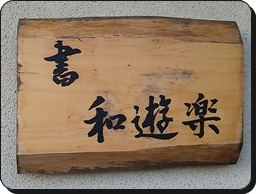 書
和遊楽